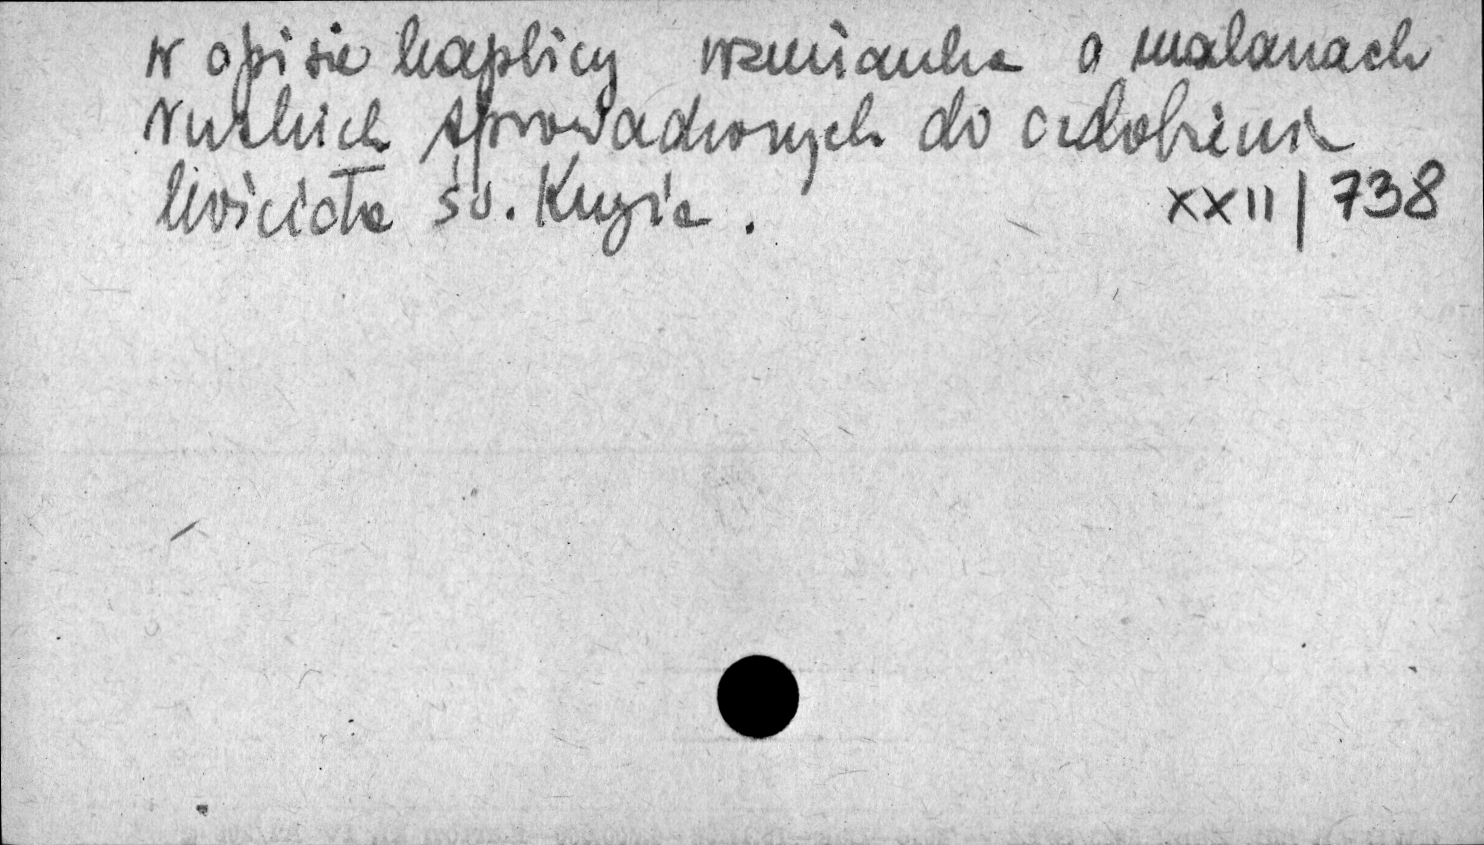 w opisie kaplicy wzmianka o malarzach
ruskich sprowadzonych do ozdobienia
kościoła św. Krzyża.
XXII | 738